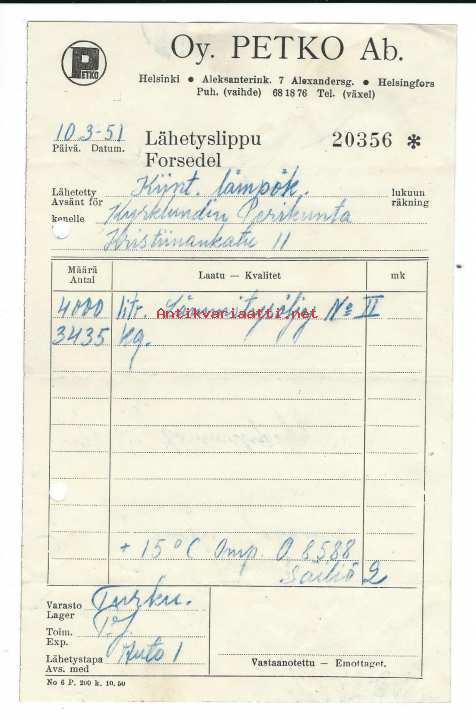 PETKO
Oy. PETKO Ab.
Helsinki • Aleksanterink. 7 Alexandersg. • Helsingfors
Puh. (vaihde) 68 18 76 Tel. (växel)
10.3-51
Päivä. Datum.
Lähetyslippu 20356 *
Forsedel
Lähetetty Kiint. lämpök. lukuun
Avsänt för räkning
kenelle Kyrklundin Perikunta
Kristiinankatu 11
Määrä Antal
Laatu — Kvalitet
mk
4000 litr. Lämmitysöljy No II
3435 kg.
Antikvariaatti.net
+ 15 °C Omp. 0,8588
Säiliö 2
Varasto Turku.
Lager
Toim. T.J.
Exp.
Lähetystapa Auto 1
Avs. med
Vastaanotettu — Emottaget.
No 6 P. 200 k. 10. 50